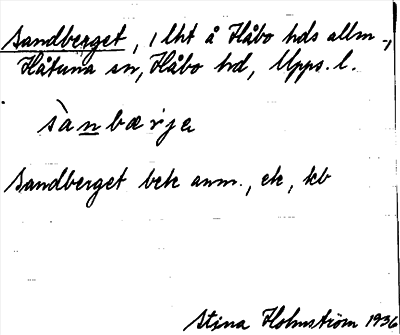 Sandberget, 1 lht å Håbo hds allm.,
Håtuna sn, Håbo hd, Upps. l.
sànbærja
Sandberget bek anm., ek, kb
Stina Holmström 1936